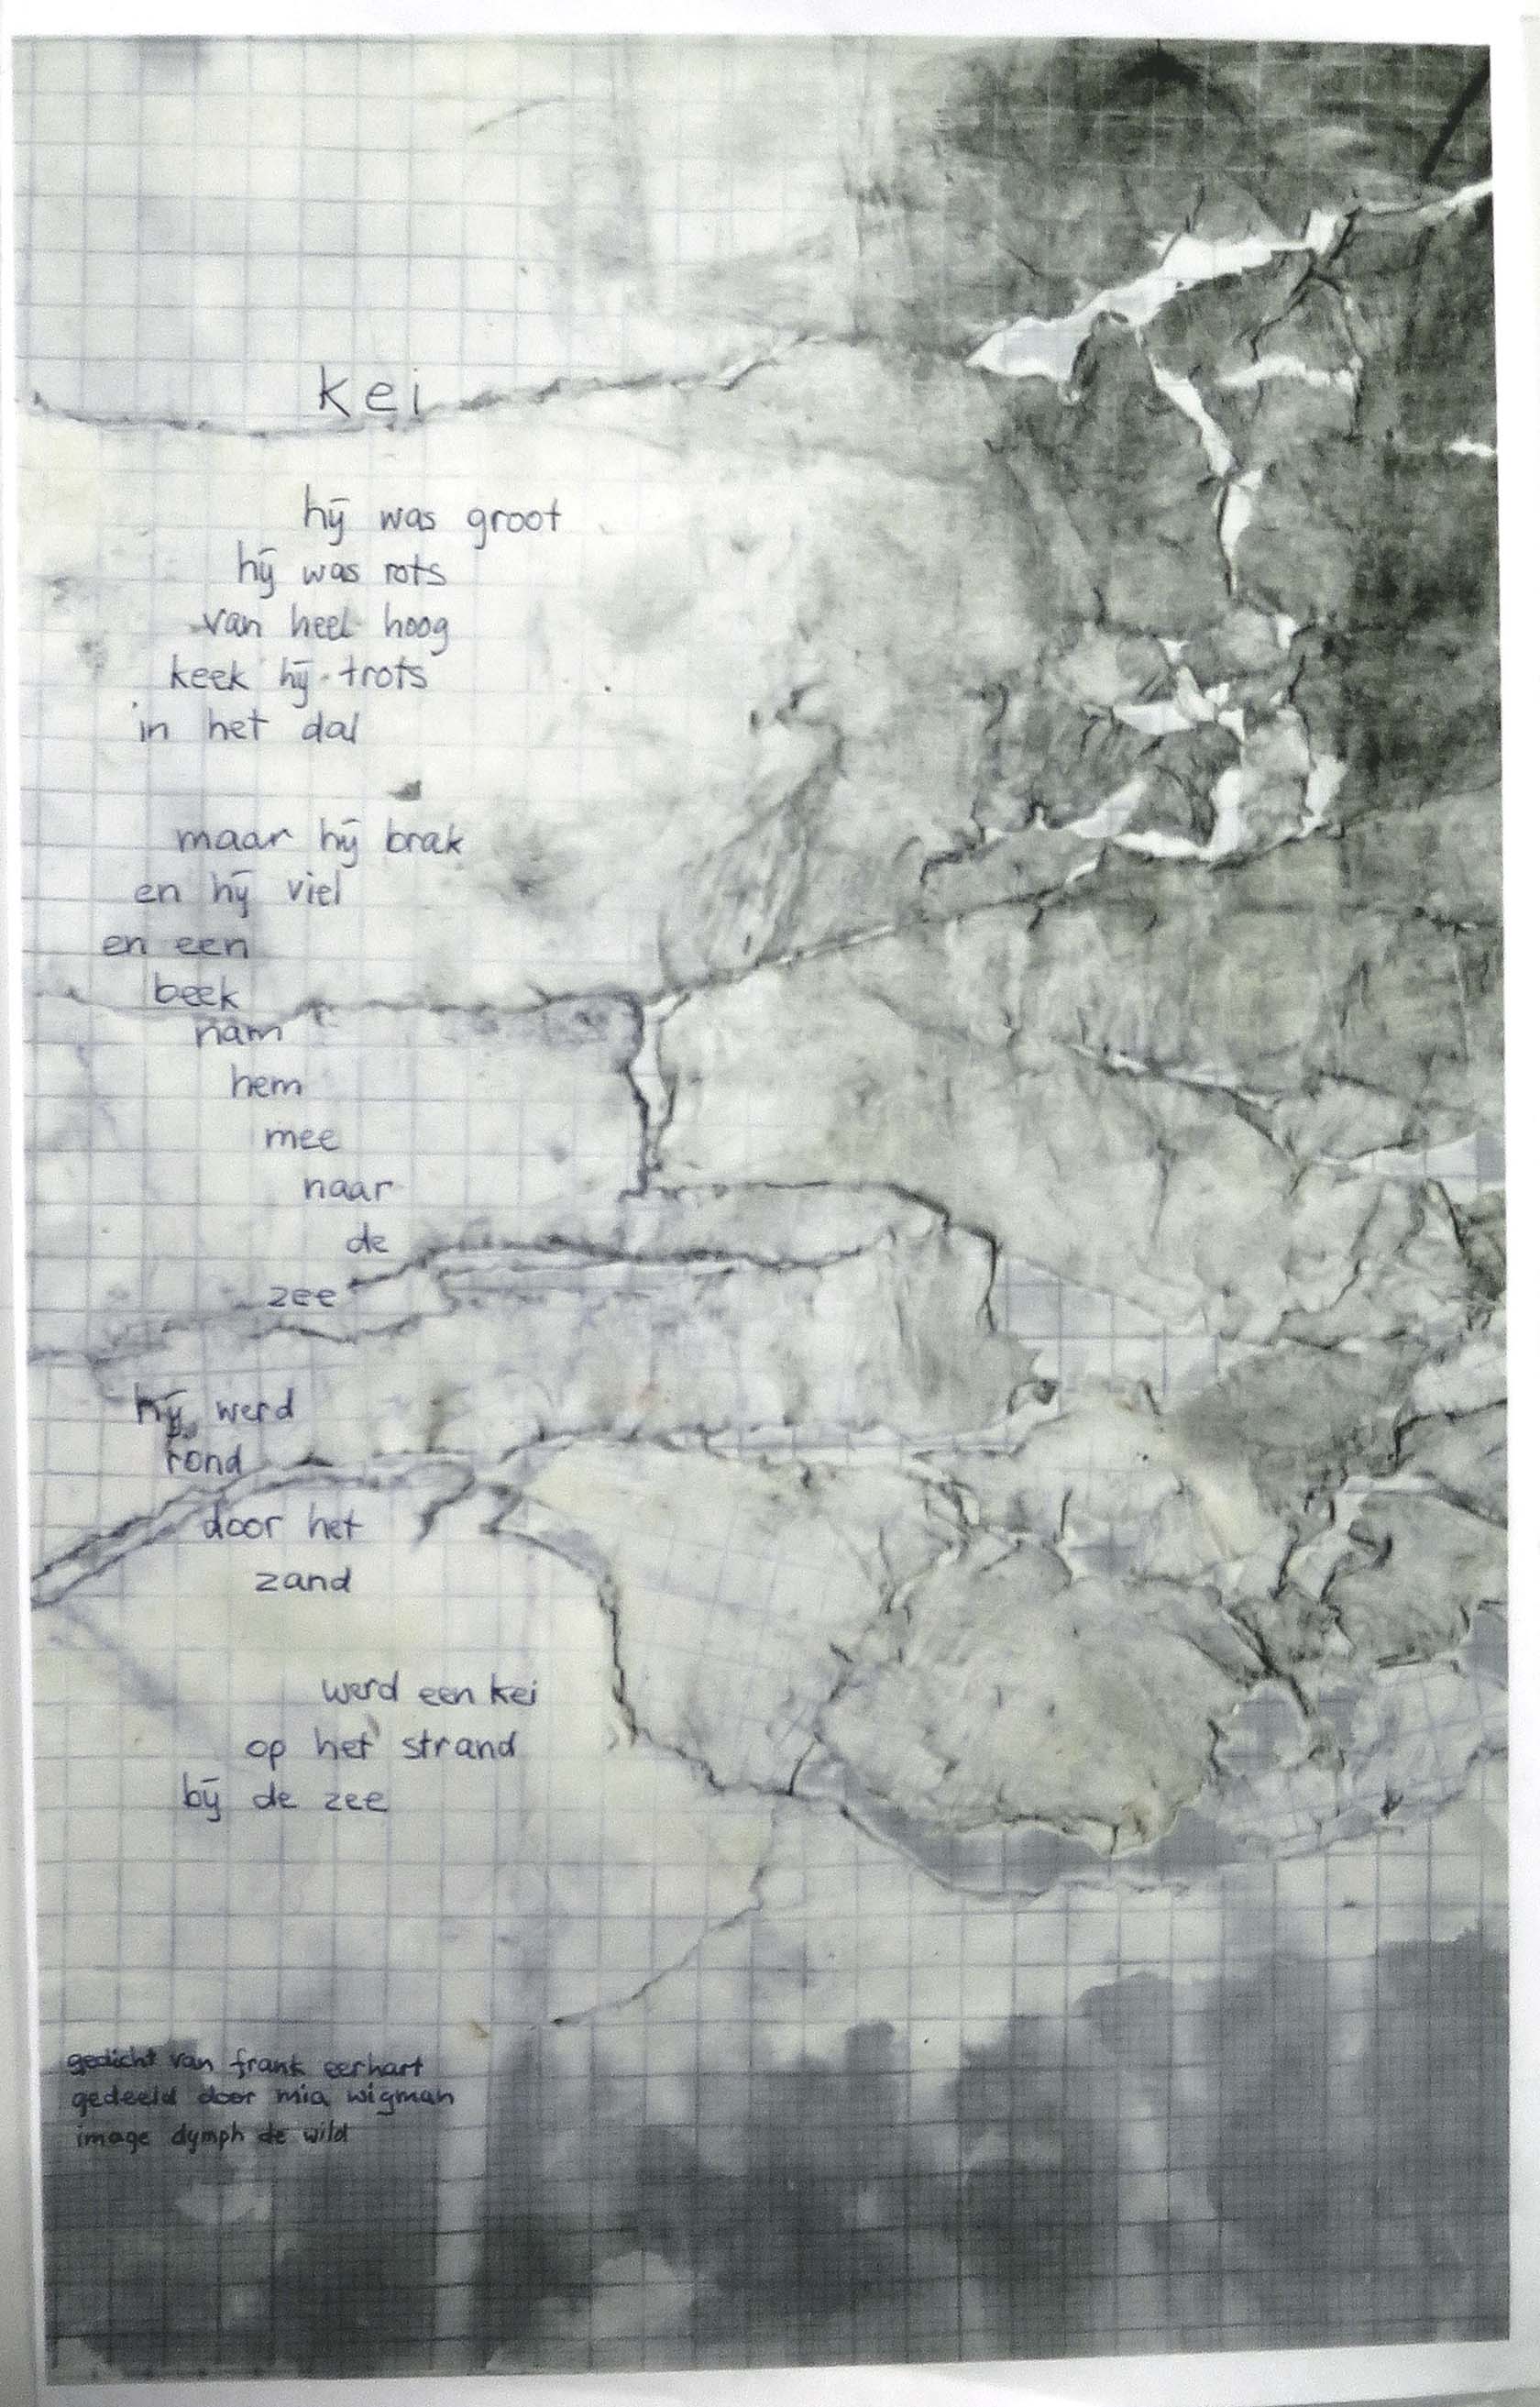 kei
hij was groot
hij was rots
van heel hoog
keek hij trots
in het dal
maar hij brak
en hij viel
en een
beek
nam
hem
mee
naar
de
zee
hij werd
rond
door het
zand
werd een kei
op het strand
bij de zee
gedicht van frank eerhart
gedeeld door mia wigman
image dymph de wild